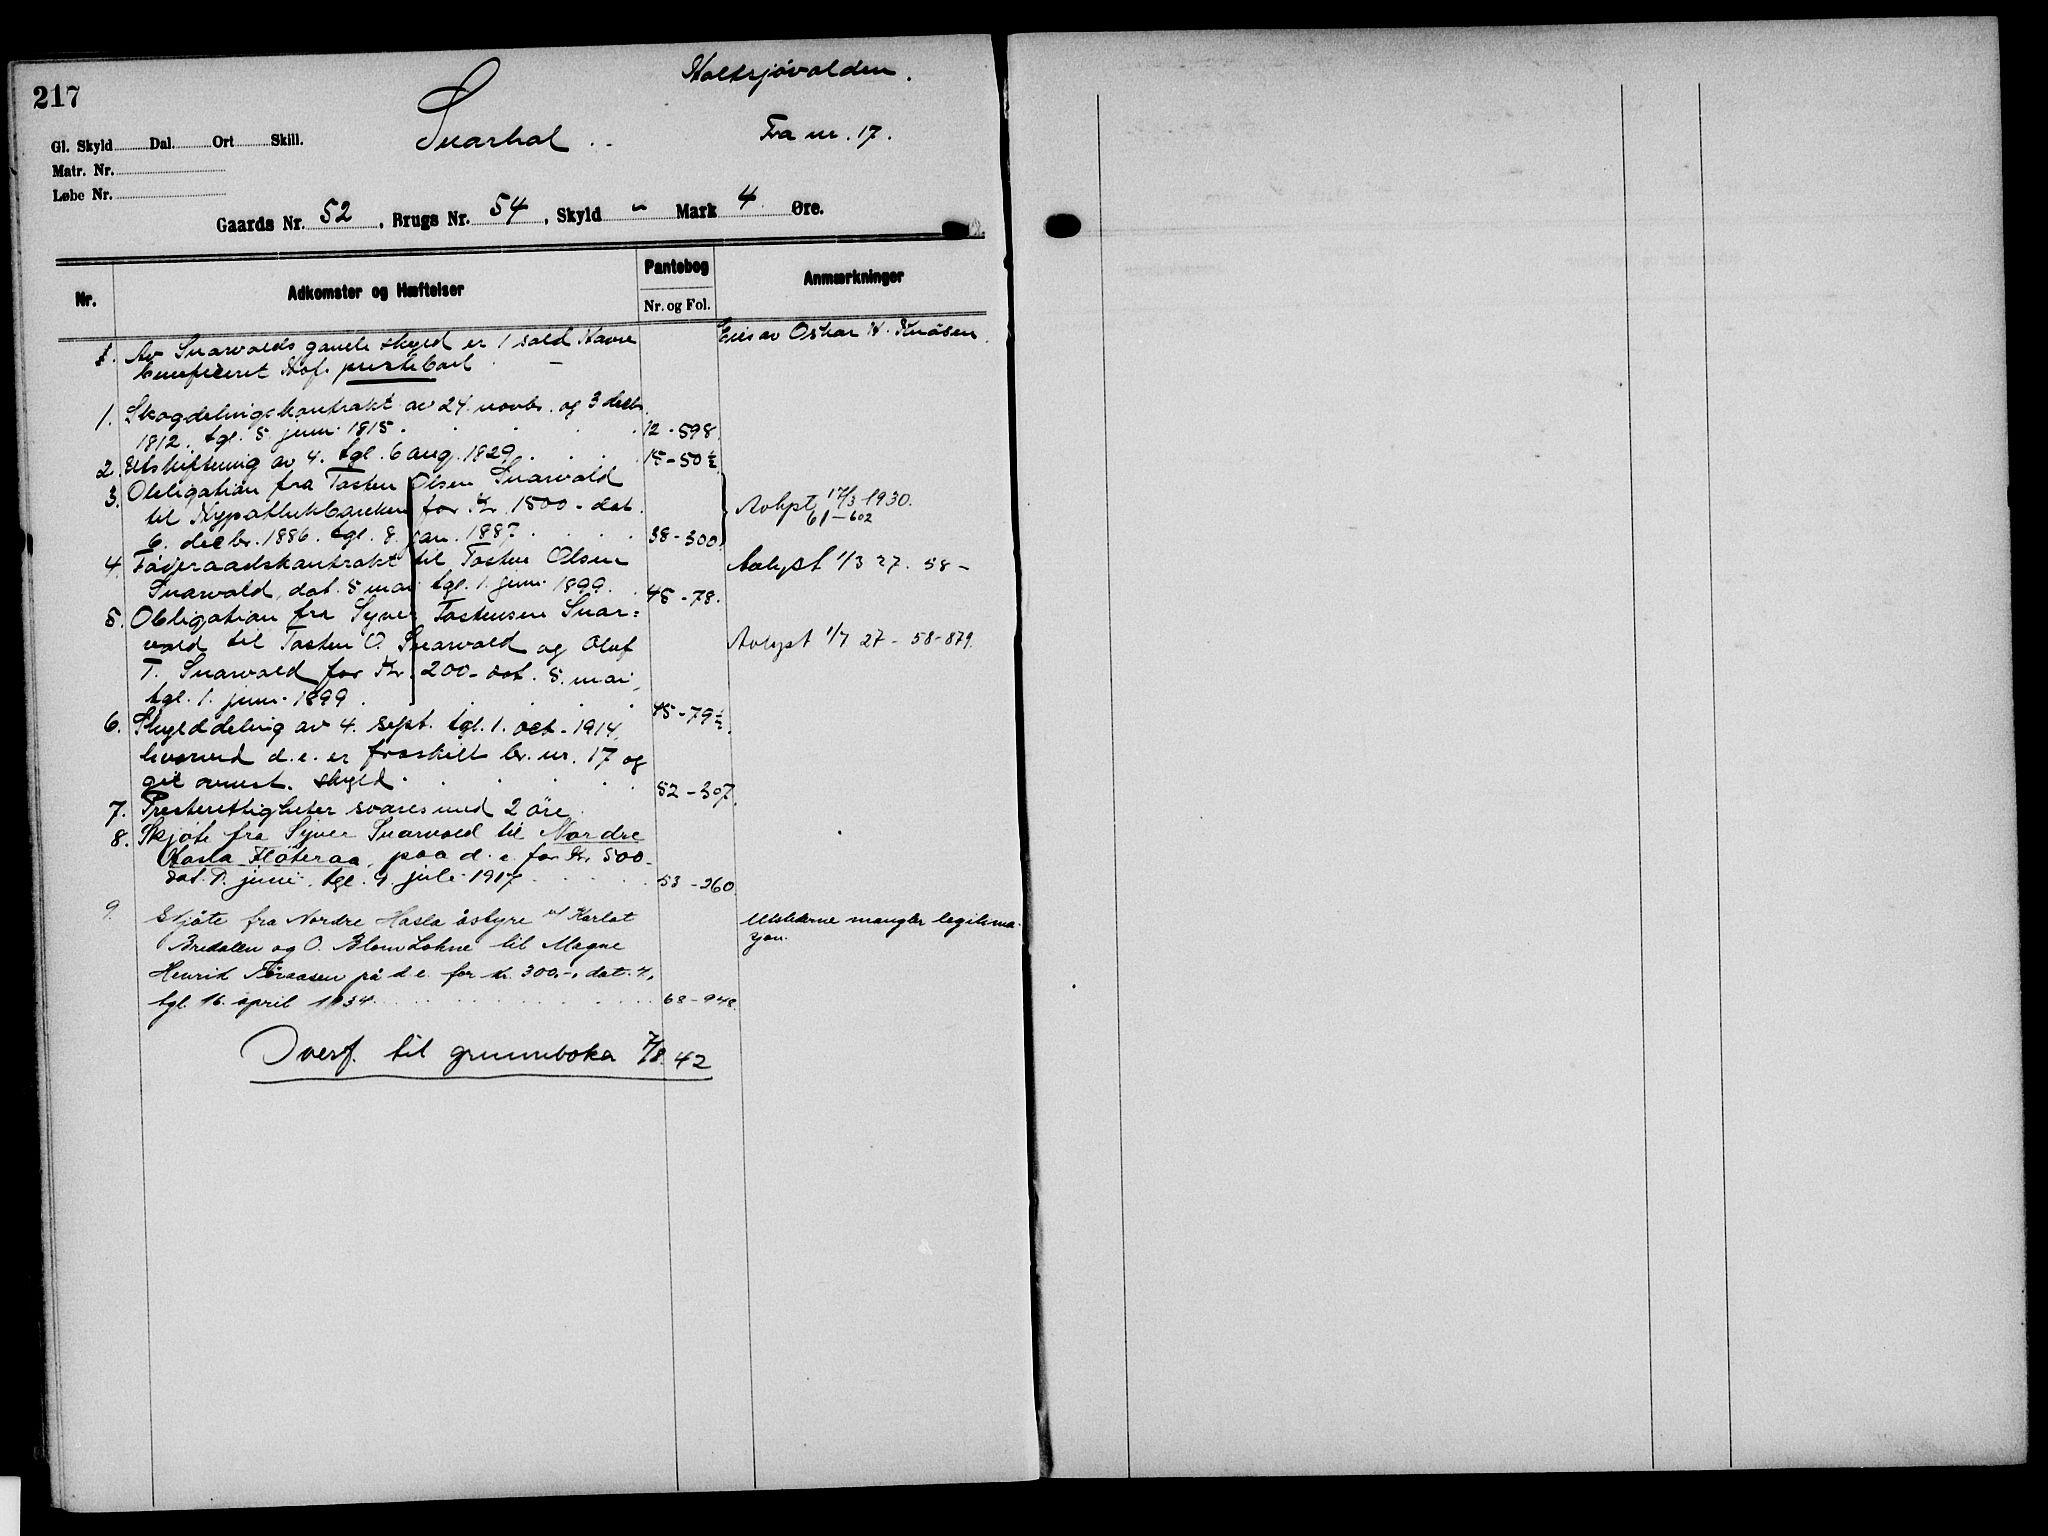 217
Holtsjøvolden.
Snarhol
Fra nr. 17.
Gl. Skyld Dal. Ort Skill.
Matr. Nr.
Løbe Nr.
Gaards Nr. 52, Brugs Nr. 54, Skyld " Mark 4 Øre.
Nr. Adkomster og Hæftelser Pantebog Nr. og Fol. Anmærkninger
1. Av Snarvolds gamle skyld er 1 sold Havre Eies av Oskar H.
beneficeret Hof prestebord
1. Skogdelingskontrakt av 24. novbr. og 3 decbr.
1812, tgl. 5 juni 1815. 12-598.
2. Utskiftning av 4. tgl. 6 aug. 1829. 15-50½
3. Obligation fra Tosten Olsen Snarvold
til Hypothekbanken for Kr. 1500- dat. Avlyst 17/3 1930.
6. decbr. 1886. tgl. 8. jan. 1887. 38-300. 61-602
4. Føderaadskontrakt til Tosten Olsen Avlyst 1/3 27. 58-
Snarvold, dat. 5 mai tgl. 1. juni 1899. 45-78.
5. Obligation fra Syver Tostensen Snar=
vold til Tosten O. Snarvold og Oluf Avlyst 1/7 27-58-879.
T. Snarvold for Kr. 200- dat. 5. mai,
tgl. 1. juni 1899. 45-79½.
6. Skylddeling av 4. sept. tgl. 1. oct. 1914,
hvorved d. e. er fraskilt br. nr. 17 og
git ovenst. skyld. 52-307.
7. Presterettigheter svares med 2 øre.
8. Skjøte fra Syver Snarvold til Nordre
Hasla Fløteraa, paa d. e. for Kr. 500-
dat. juni, tgl. juli 1917. 53-260.
9. Skjøte fra Nordre Hasla åstyre v/ Karlot Utstederne mangler legitima-
Bredalen og O. Blom Lohne til Magne sjon.
Henrik på d. e. for kr. 300,-, dat. 4,
tgl. 16. april 1934. 68-948.
Overf. til grunnboka 7/8. 42